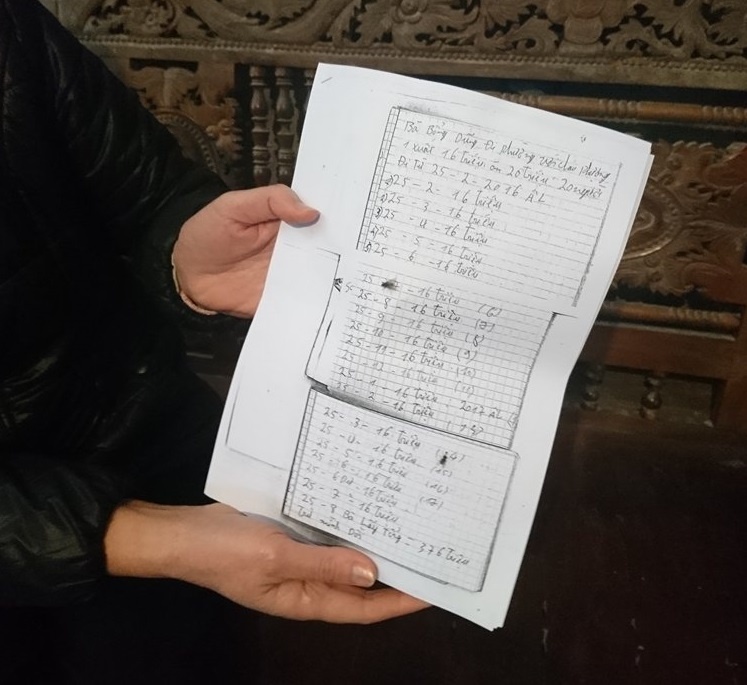 Bà Động Dũng Đi phường
1 xuất 16 triệu ăn 20 triệu - 20 người
Đi Từ 25 - 2 - 2016 AL
1) 25 - 2 - 16 triệu
2) 25 - 3 - 16 triệu
3) 25 - 4 - 16 triệu
4) 25 - 5 - 16 triệu
5) 25 - 6 - 16 triệu
25 - 16 triệu (6)
25 - 8 - 16 triệu (7)
25 - 9 - 16 triệu (8)
25 - 10 - 16 triệu (9)
25 - 11 - 16 triệu (10)
25 - 12 - 16 triệu (11)
25 - 1 - 16 triệu 2017 AL
25 - 2 - 16 triệu
25 - 3 - 16 triệu (14)
25 - 4 - 16 triệu (15)
25 - 5 - 16 triệu (16)
25 - 6 - 16 triệu (17)
25 - 6 - 16 triệu
25 - 7 - 16 triệu
25 - 8 Bà Lấy Tổng = 376 triệu